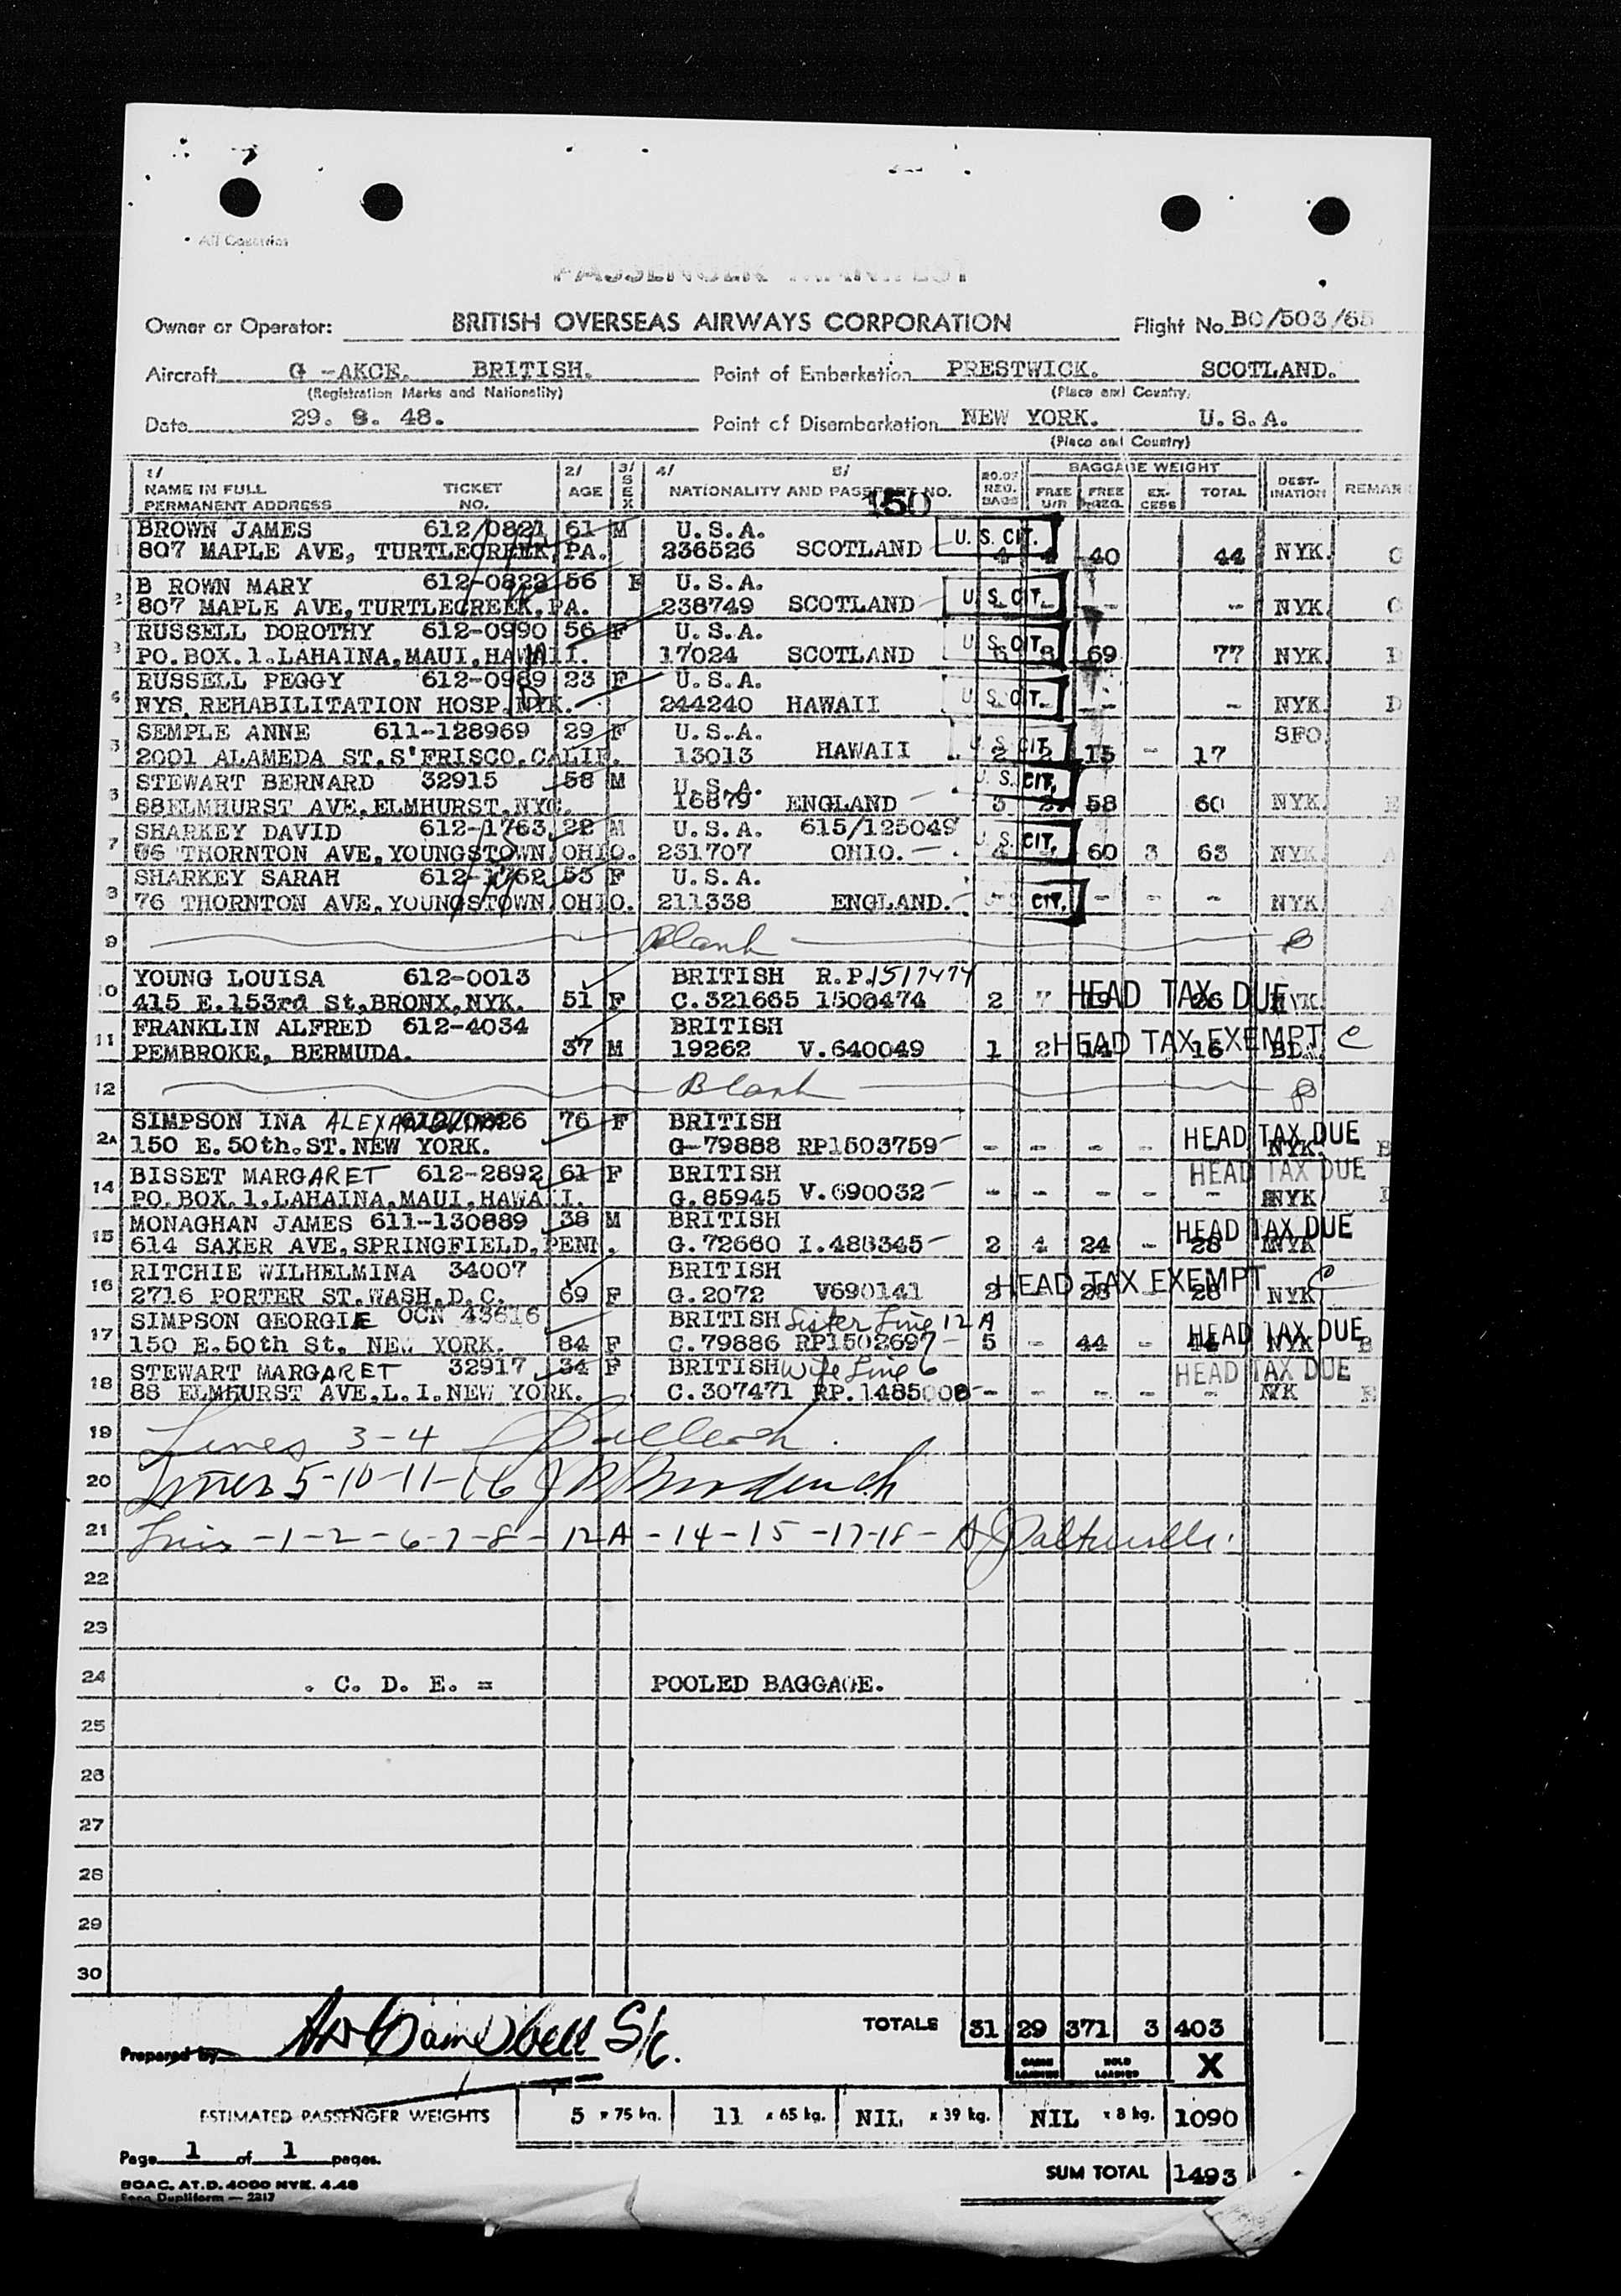 All Countries
PASSENGER MANIFEST
Owner or Operator: BRITISH OVERSEAS AIRWAYS CORPORATION Flight No. BO/503/65
Aircraft G -AKCE. BRITISH. Point of Embarkation PRESTWICK. SCOTLAND.
(Registration Marks and Nationality) (Place and Country)
Date 29. 8. 48. Point of Disembarkation NEW YORK. U.S.A.
(Place and Country)
1/ 2/ 3/ 4/ 5/ NO. OF REG. BAGS BAGGAGE WEIGHT DEST-INATION REMARK
NAME IN FULL TICKET AGE SEX NATIONALITY AND PASSPORT NO. FREE FREE REG. EX-CESS TOTAL
PERMANENT ADDRESS NO. 150
BROWN JAMES 612/0821 61 M U.S.A. U. S. CIT.
1 807 MAPLE AVE, TURTLECREEK, PA. 236526 SCOTLAND 4 4 40 44 NYK. C
B ROWN MARY 612-0822 56 F U.S.A. U. S. CIT.
2 807 MAPLE AVE, TURTLECREEK, PA. 238749 SCOTLAND - - NYK. C
RUSSELL DOROTHY 612-0990 56 F U.S.A. U. S. CIT.
3 PO.BOX.1.LAHAINA,MAUI,HAWAII. 17024 SCOTLAND 6 8 69 77 NYK. D
RUSSELL PEGGY 612-0989 23 F U.S.A. U. S. CIT.
NYS. REHABILITATION HOSP.NYK. 244240 HAWAII - - - NYK. D
SEMPLE ANNE 611-128969 29 F U.S.A. U. S. CIT. SFO
2001 ALAMEDA ST,S'FRISCO,CALIF. 13013 HAWAII 2 2 15 - 17
STEWART BERNARD 32915 58 M U.S.A. U. S. CIT.
88ELMHURST AVE,ELMHURST,NYC. 16879 ENGLAND 3 2 58 60 NYK. E
SHARKEY DAVID 612-1763 22 M U.S.A. 615/125049 U. S. CIT.
7 76 THORNTON AVE,YOUNGSTOWN OHIO. 231707 OHIO. 4 60 3 63 NYK. A
SHARKEY SARAH 612-1762 53 F U.S.A.
8 76 THORNTON AVE,YOUNGSTOWN OHIO. 211338 ENGLAND. CIT. - - - NYK A
9 Blank
YOUNG LOUISA 612-0013 BRITISH R.P.1517474
10 415 E.153rd St,BRONX,NYK. 51 F C.321665 1508474 2 7 19 26 NYK. HEAD TAX DUE
FRANKLIN ALFRED 612-4034 BRITISH
11 PEMBROKE, BERMUDA. 37 M 19262 V.640049 1 2 14 16 BDA. HEAD TAX EXEMPT C
12 Blank
SIMPSON INA ALEXANDRINA 612/0826 76 F BRITISH HEAD TAX DUE
12A 150 E.50th.ST.NEW YORK. G-79888 RP1503759 - - - - - NYK. B
BISSET MARGARET 612-2892 61 F BRITISH HEAD TAX DUE
14 PO.BOX.1.LAHAINA,MAUI,HAWAII. G.85945 V.690032 - - - - - NYK
MONAGHAN JAMES 611-130889 38 M BRITISH HEAD TAX DUE
15 614 SAXER AVE,SPRINGFIELD,PENN. G.72660 I.486345 2 4 24 - 28 NYK
RITCHIE WILHELMINA 34007 BRITISH HEAD TAX EXEMPT
16 2716 PORTER ST.WASH.D.C. 69 F G.2072 V690141 2 28 NYK
SIMPSON GEORGIE OCN 43616 BRITISH Sister Line 12A
17 150 E.50th St. NEW YORK. 84 F C.79886 RP1502697 5 - 44 - 44 HEAD TAX DUE NYK B
STEWART MARGARET 32917 34 F BRITISH Wife Line 6 HEAD TAX DUE
18 88 ELMHURST AVE,L.I.NEW YORK. C.307471 RP.1485008 - - - - - NYK E
19 Lines 3-4
20 Lines 5-10-11-16
21 Lines -1-2-6-7-8-12A-14-15-17-18-
22
23
24 . C. D. E. = POOLED BAGGAGE.
25
26
27
28
29
30
TOTALS 31 29 371 3 403
Prepared by Campbell S/c.
CABIN LOADED HOLD LOADED X
ESTIMATED PASSENGER WEIGHTS 5 x 75 kg. 11 x 65 kg. NIL x 39 kg. NIL x 8 kg. 1090
Page 1 of 1 pages.
SUM TOTAL 1493
BOAC. AT.D. 4000 NYK. 4.48
Dupliform — 2217